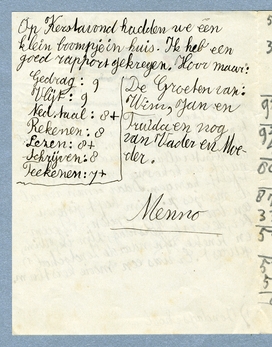 Op Kerstavond hadden we één
klein boompje in huis. Ik heb een
goed rapport gekregen. Hoor maar:
Gedrag: 9
Vlijt: 9
Ned. taal: 8+
Rekenen: 8
Lezen: 8+
Schrijven: 8
Teekenen: 7+
De Groeten van:
Wim, Jan en
Truida en nog
van Vader en Moe-
der.
Menno